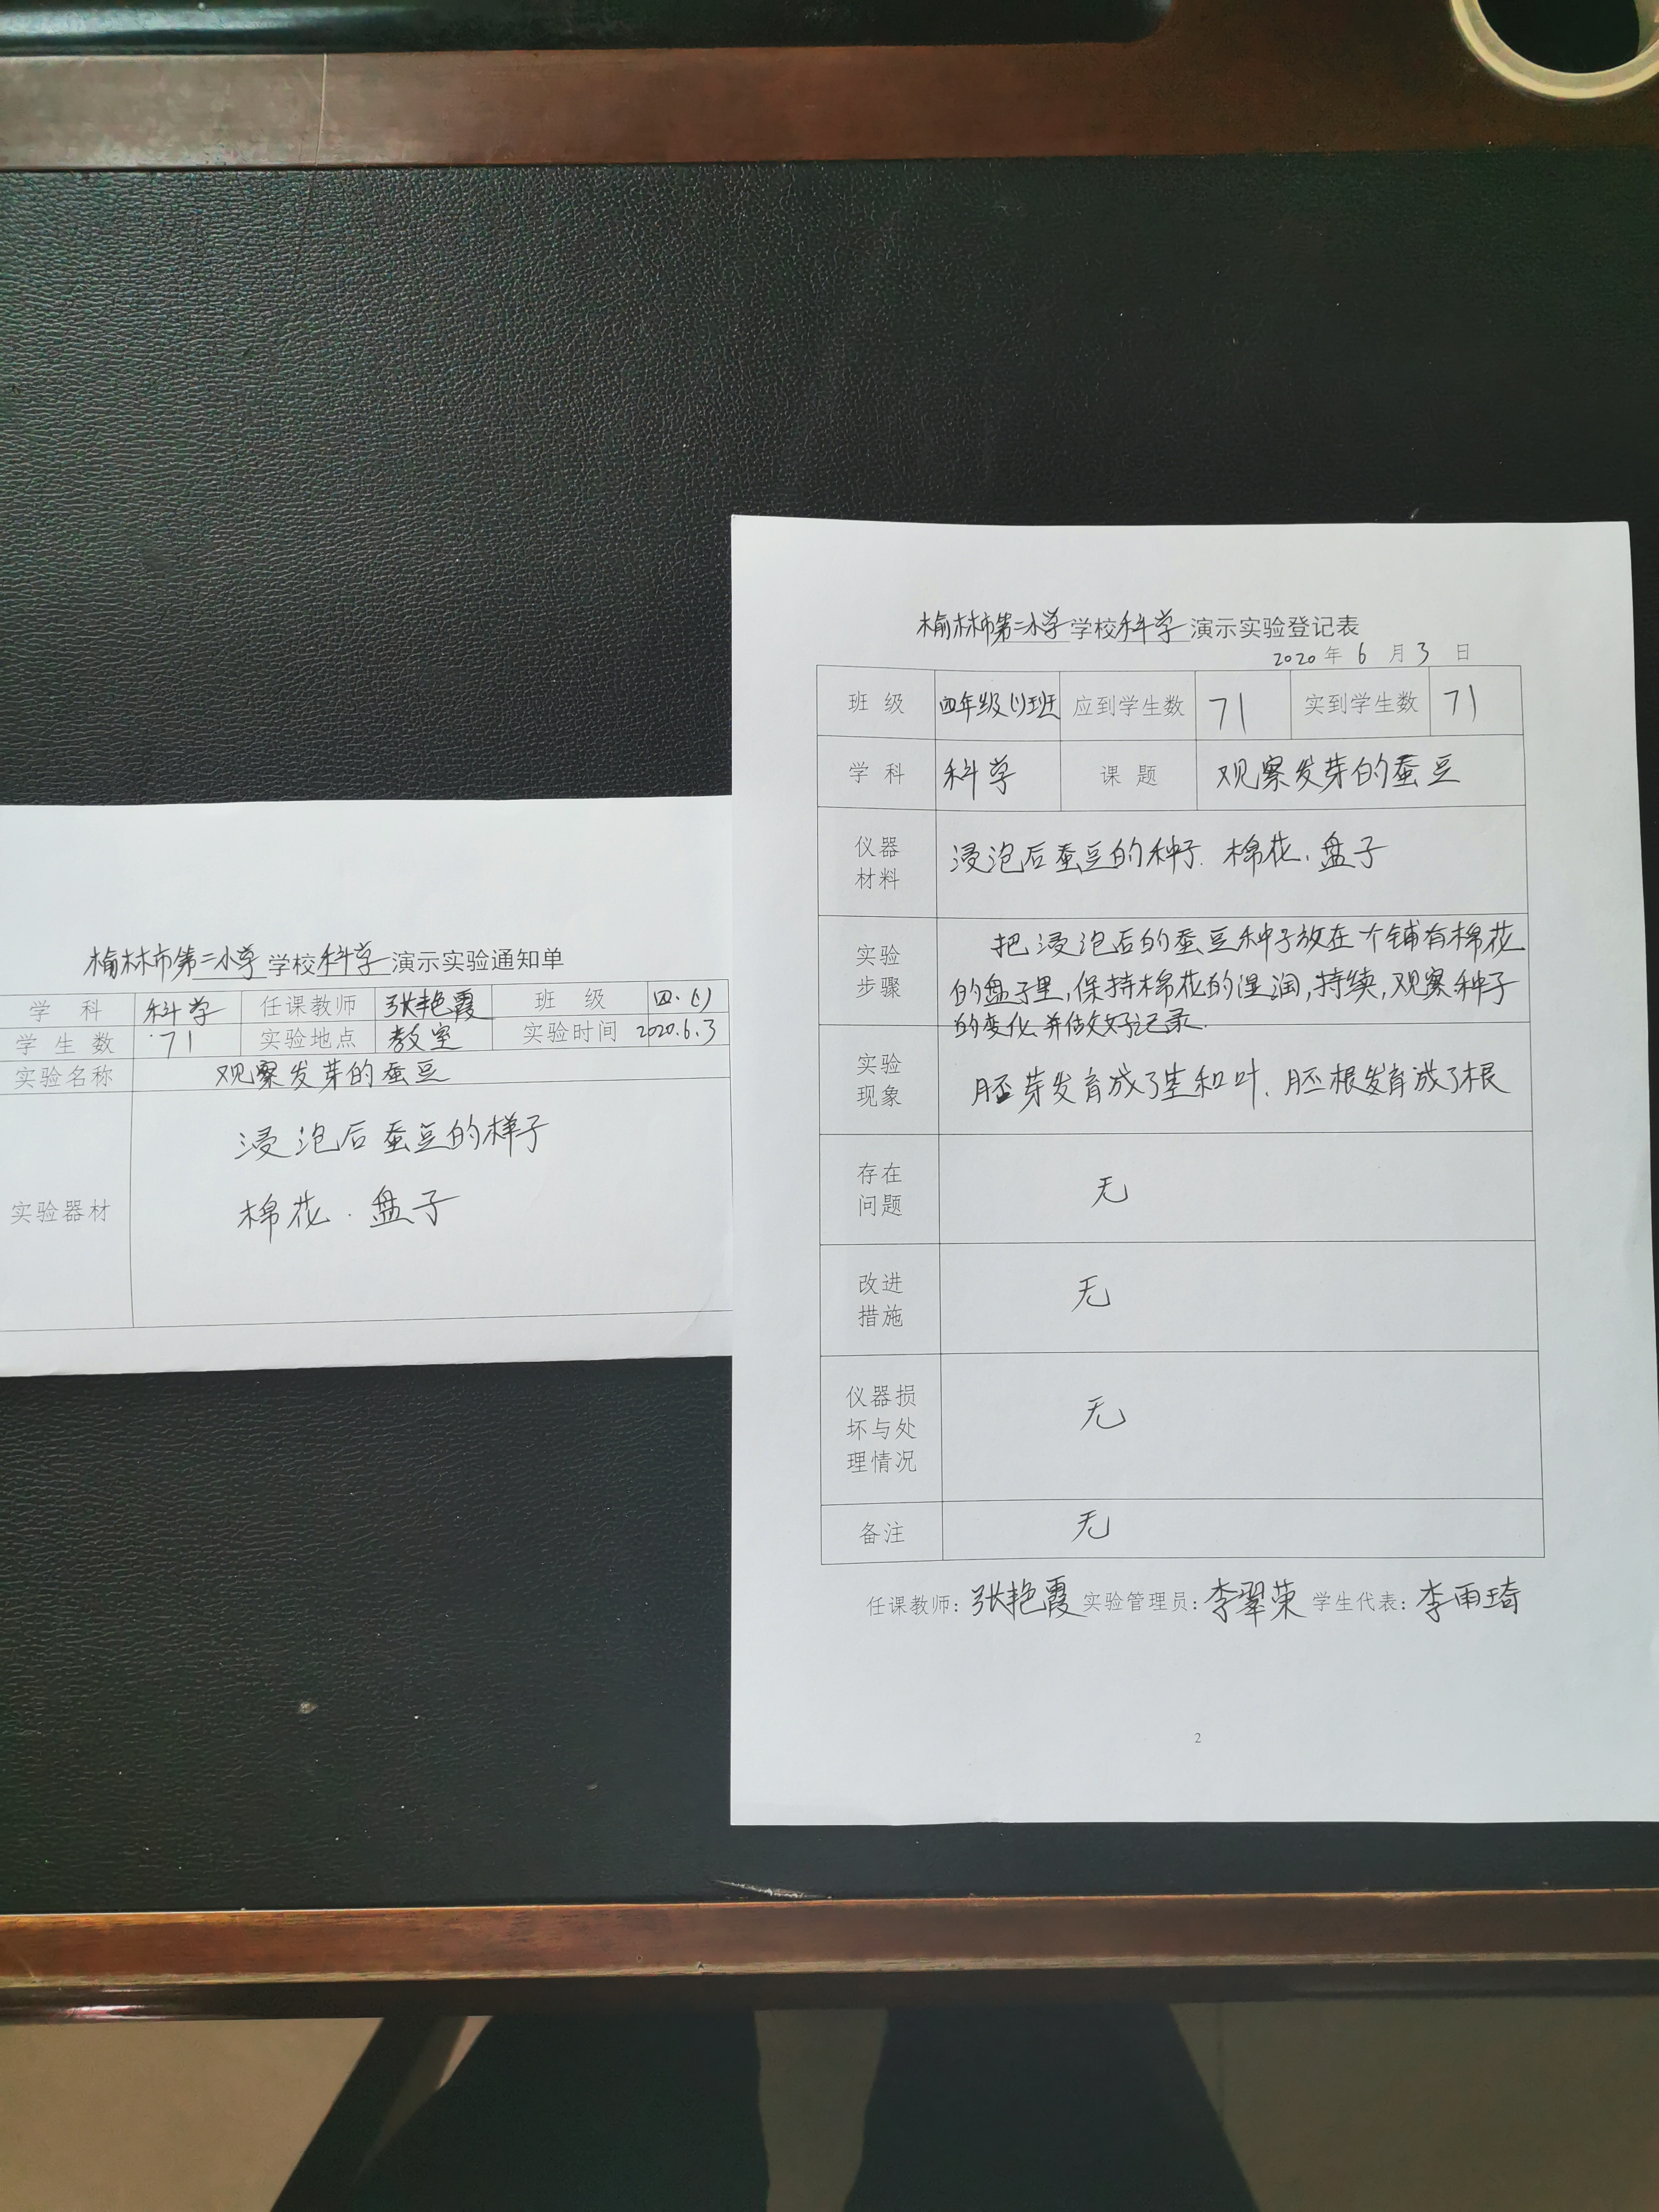 榆林市第二小学学校科学演示实验通知单
学 科 科学 任课教师 张艳霞 班 级 四.(1)
学 生 数 71 实验地点 教室 实验时间 2020.6.3
实验名称 观察发芽的蚕豆
浸泡后蚕豆的样子
实验器材 棉花.盘子
榆林市第二小学学校科学演示实验登记表
2020年6月3日
班 级 四年级(1)班 应到学生数 71 实到学生数 71
学 科 科学 课 题 观察发芽的蚕豆
仪器
材料
浸泡后蚕豆的种子.棉花、盘子
实验
步骤
把浸泡后的蚕豆种子放在个铺有棉花
的盘子里,保持棉花的湿润,持续,观察种子
的变化.并做好记录.
实验
现象
胚芽发育成了茎和叶.胚根发育成了根
存在
问题
无
改进
措施
无
仪器损
坏与处
理情况
无
备注 无
任课教师:张艳霞 实验管理员:李翠荣 学生代表:李雨琦
2